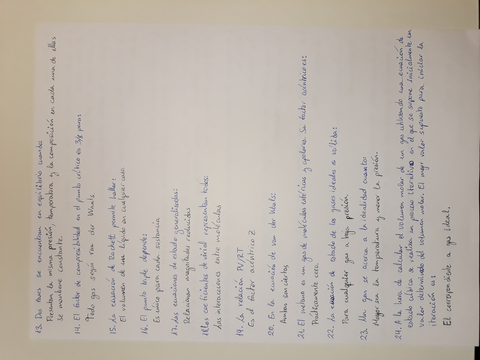 13. Dos fases se encuentran en equilibrio cuando
Presentan la misma presión, temperatura y la composición en cada una de ellas
se mantiene constante.
14. El factor de compresibilidad en el punto crítico es 3/8 para:
Todo gas según van der Waals
15. La ecuación de Rackett permite hallar:
El volumen de un líquido en cualquier caso
16. El punto Boyle depende:
Es único para cada sustancia
17. Las ecuaciones de estado generalizadas:
Relacionan magnitudes reducidas
18. Los coeficientes de virial representan todos:
Las interacciones entre moléculas
19. La relación PV/RT
Es el factor acéntrico Z
20. En la ecuación de van der Waals:
Ambas son ciertas
21. El metano es un gas de moléculas esféricas y apolares. Su factor acéntrico es:
Prácticamente cero.
22. La ecuación de estado de los gases ideales es válida:
Para cualquier gas a baja presión
23. Un gas se acerca a la idealidad cuanto:
Mayor sea la temperatura y menor la presión.
24. A la hora de calcular el volumen molar de un gas utilizando una ecuación de
estado cúbica se realiza un proceso iterativo en el que se supone inicialmente un
valor determinado del volumen molar. El mejor valor supuesto para iniciar la
iteración es:
El correspondiente a gas ideal.